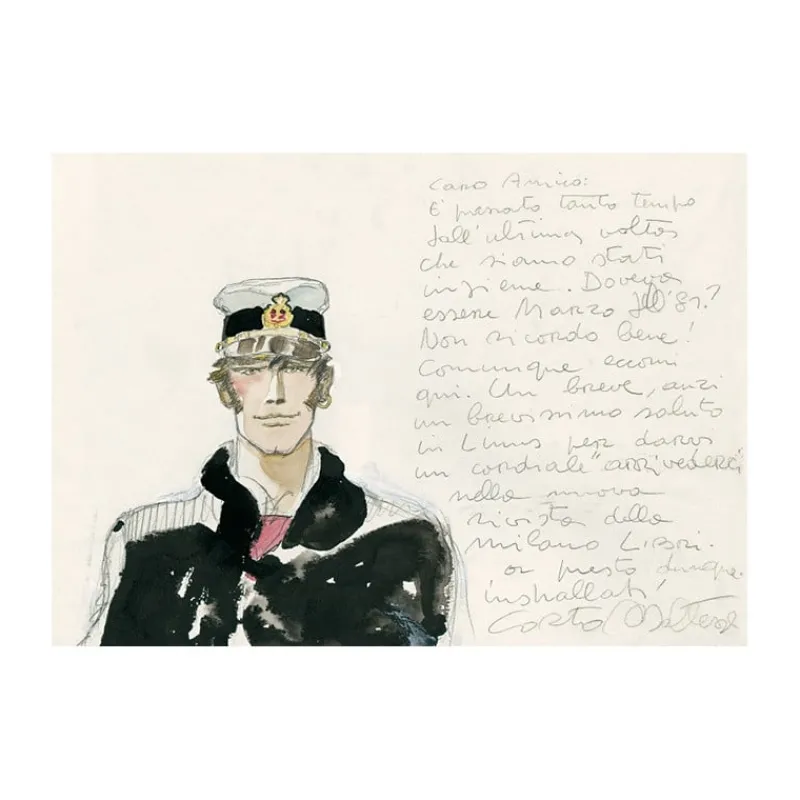 Caro Amico:
È passato tanto tempo
dall'ultima volta
che siamo stati
insieme. Doveva
essere Marzo dell'81?
Non ricordo bene!
Comunque eccomi
qui. Un breve, anzi
un brevissimo saluto
in Linus per darvi
un cordiale "arrivederci
nella nuova
rivista della
Milano Libri.
a presto dunque.
inshallah!
Corto Maltese